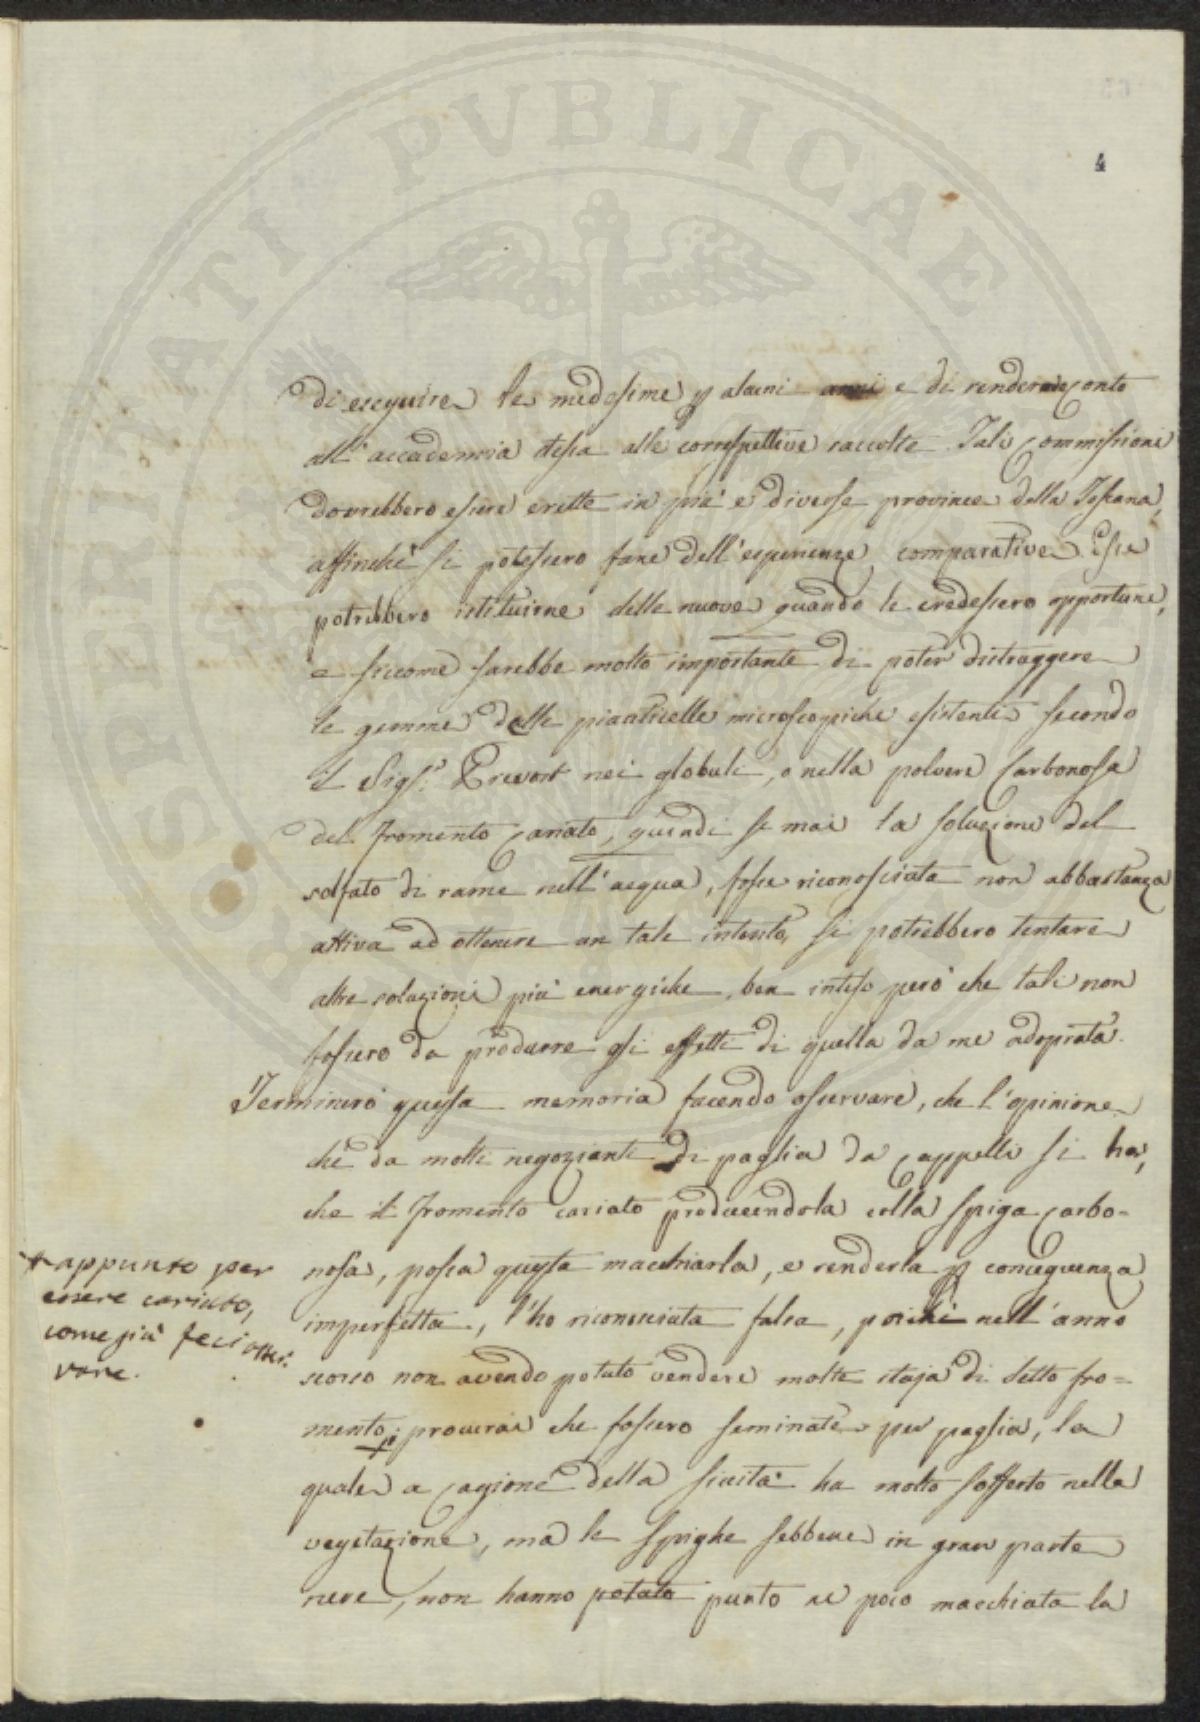 4
di eseguire le medesime p alcuni anni e di renderne conto
all'accademia stessa alle correspettive raccolte. Tali Commissioni
dovrebbero essere erette in più e diverse province della Toscana,
affinchè si potessero fare dell'esperienze comparative. Esse
potrebbero istituirne delle nuove quando le credessero opportune,
e siccome sarebbe molto importante di poter distruggere
le gemme delle pianticelle microscopiche esistenti secondo
il Sig.r Prevost nei globuli, o nella polvere Carbonosa
del fromento Cariato, quindi se mai la soluzione del
solfato di rame nell'acqua, fosse riconosciuta non abbastanza
attiva ad ottenere un tale intento, si potrebbero tentare
altre soluzioni più energiche, ben inteso però che tali non
fossero da produrre gli effetti di quella da me adoprata.
Terminerò questa memoria facendo osservare, che l'opinione
che da molti negozianti di paglia da Cappelli si ha,
che il fromento cariato producendola colla spiga Carbo=
nosa, possa questa macchiarla, e renderla p conseguenza
imperfetta, l'ho riconosciuta falsa, poichè nell'anno
scorso non avendo potuto vendere molte staja di detto fro=
mento + procurai che fossero seminate per paglia, la
quale a Cagione della siccità ha molto sofferto nella
vegetazione, ma le spighe sebbene in gran parte
nere, non hanno potuto punto nè poco macchiata la
+ appunto per
essere cariato,
come già feci osser:
vare.
HOSPITALITATI PUBLICAE